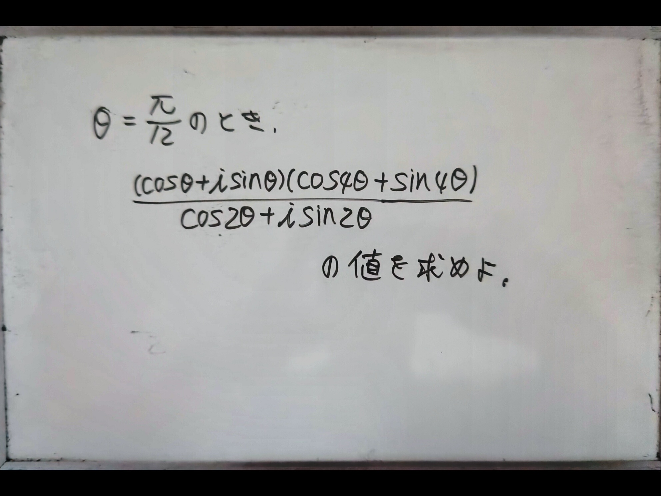 θ = π/12 のとき,
(cosθ+isinθ)(cos4θ+sin4θ)
cos2θ+isin2θ
の値を求めよ.